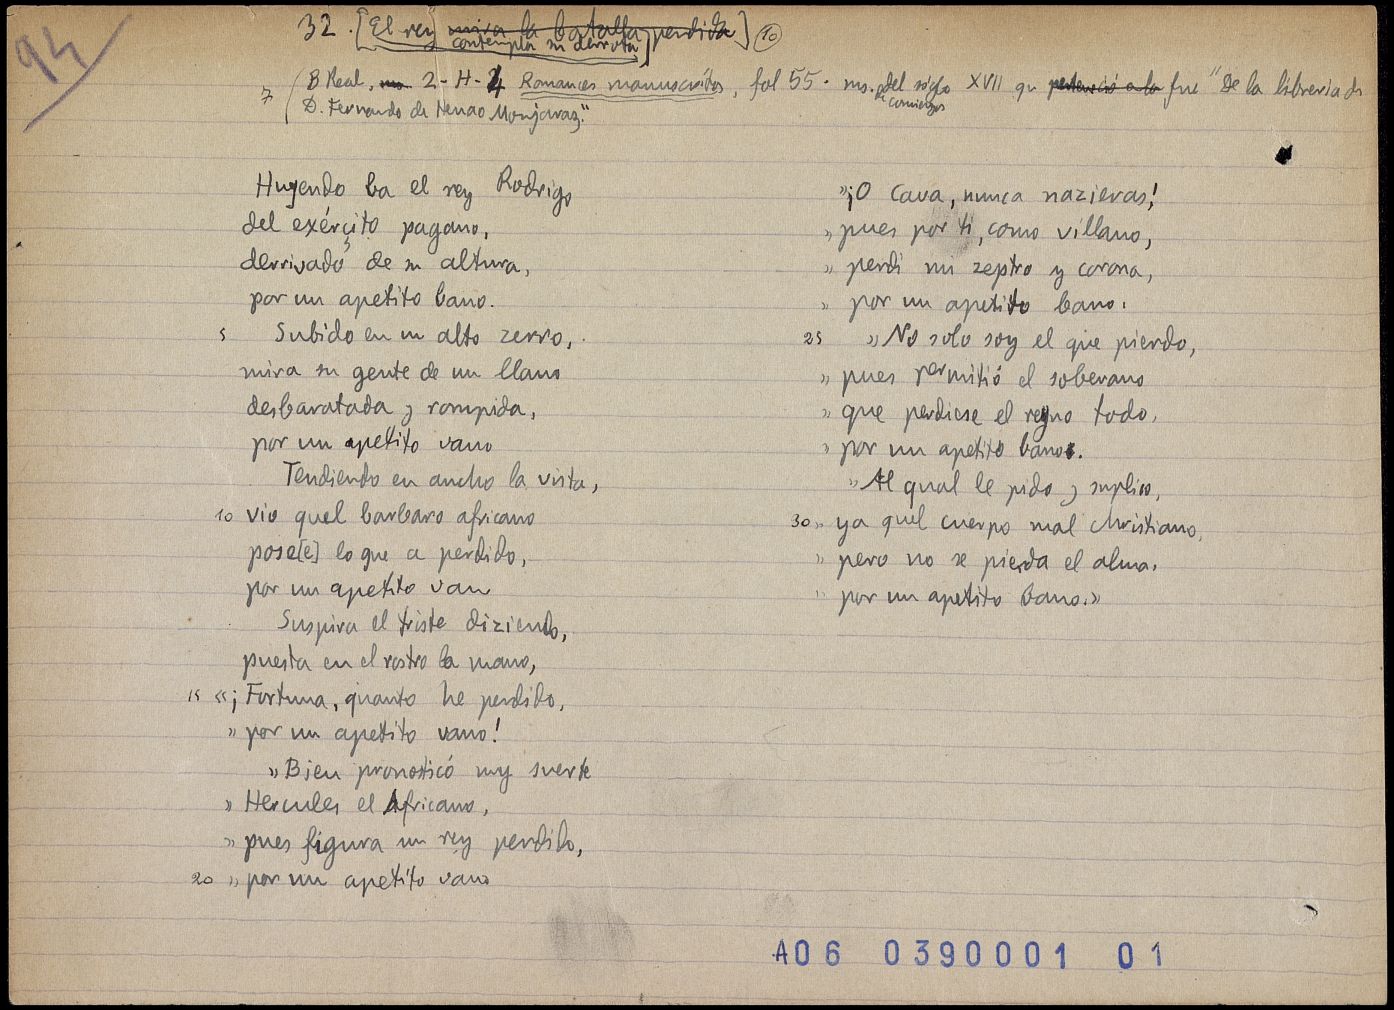 94
32. [El rey mira la batalla perdida] 10
contempla su derrota]
7 ( B Real, 2-H-4 Romances manuscritos, fol 55. ms. del siglo XVII qu perteneció a la fue "De la libreria de
de comienzos
D. Fernando de Henao Monjaraz."
Huyendo ba el rey Rodrigo
del exérçito pagano,
derrivado de su altura,
por un apetito bano.
5 Subido en un alto zerro,
mira su gente de un llano
desbaratada y rompida,
por un apetito vano
Tendiendo en ancho la vista,
10 vio quel barbaro africano
pose[e] lo que a perdido,
por un apetito vano
Suspira el triste diziendo,
puesta en el rostro la mano,
15 «¡Fortuna, quanto he perdido,
» por un apetito vano!
» Bien pronosticó my suerte
» Hercules el Africano,
» pues figura un rey perdido,
20 » por un apetito vano
» ¡O Cava, nunca nazieras!
» pues por ti, como villano,
» perdi mi zeptro y corona,
» por un apetito bano.
25 » No solo soy el que pierdo,
» pues permitió el soberano
» que perdiese el reyno todo,
» por un apetito bano.
» Al qual le pido y suplico,
30 » ya quel cuerpo mal christiano,
» pero no se pierda el alma,
» por un apetito bano.»
A06 0390001 01